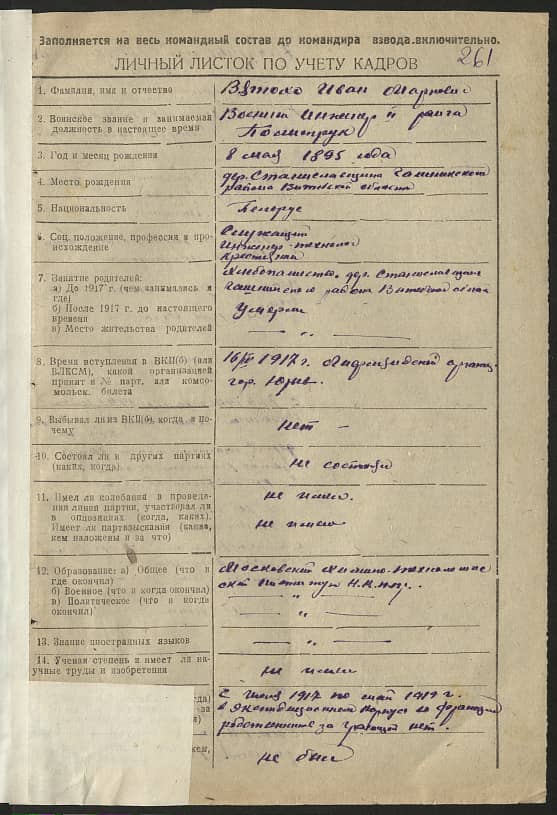 Заполняется на весь командный состав до командира взвода включительно.
261
ЛИЧНЫЙ ЛИСТОК ПО УЧЕТУ КАДРОВ
1. Фамилия, имя и отчество
Иван Маркович
2. Воинское звание и занимаемая
должность в настоящее время
Военный Инженер II ранга
Политрук
3. Год и месяц рождения
8 мая 1895 года
4. Место рождения
дер. Станиславщина
района Витебской области
5. Национальность
Белорус
6. Соц. положение, профессия и про-
исхождение
Служащий
Инженер-технолог
крестьянин
7. Занятие родителей:
а) До 1917 г. (чем занимались и
где)
б) После 1917 г. до настоящего
времени
в) Место жительства родителей
Хлебопашество, дер. Станиславщина
района Витебской области
Умерли
— „ —
8. Время вступления в ВКП(б) (или
ВЛКСМ), какой организацией
принят и № парт. или комсо-
мольск. билета
1917 г.
гор.
9. Выбывал ли из ВКП(б), когда и по-
чему
нет —
10. Состоял ли в других партиях
(каких, когда)
не состоял
11. Имел ли колебания в проведе-
нии линии партии, участвовал ли
в оппозициях (когда, каких).
Имеет ли партвзыскания (какие,
кем наложены и за что)
не имел.
не имею
12. Образование: а) Общее (что и
где окончил)
б) Военное (что и когда окончил)
в) Политическое (что и когда
окончил)
Московский Химико-технологиче
ский институт
— „ —
— „ —
13. Знание иностранных языков
— „ —
14. Ученая степень и имеет ли на-
учные труды и изобретения
не имею
гда)
за
и)
С июля 1917 по май 1919 г.
в экспедиционном корпусе во франции
родственников за границей нет.
кем,
не был